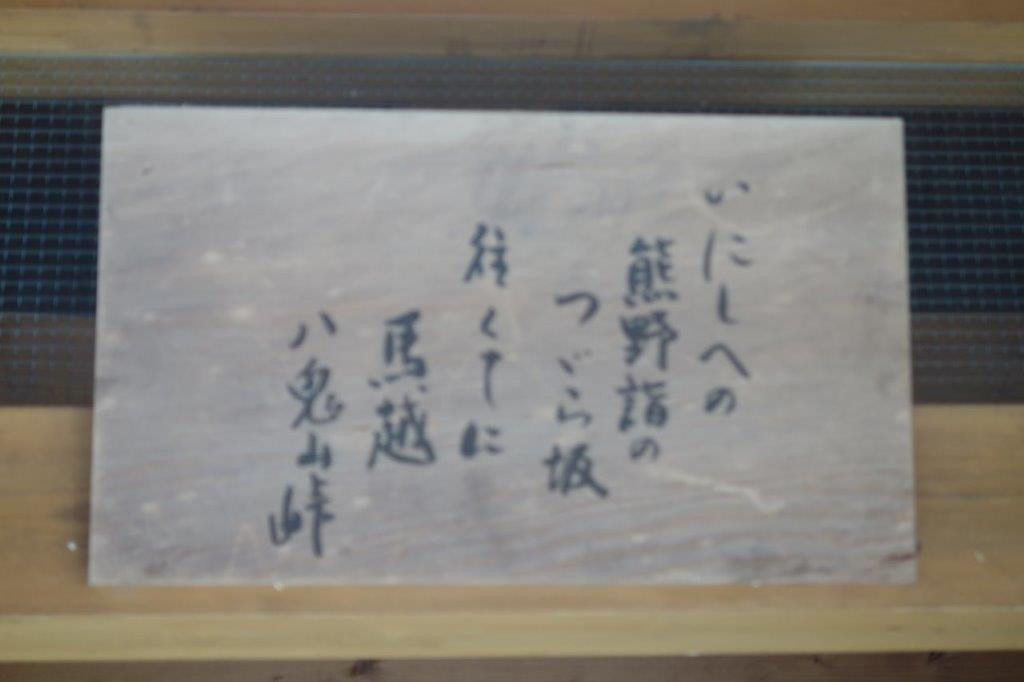 いにしへの
熊野詣の
つゞら坂
往くてに
馬越
八鬼山峠